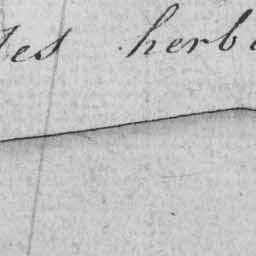 les herb